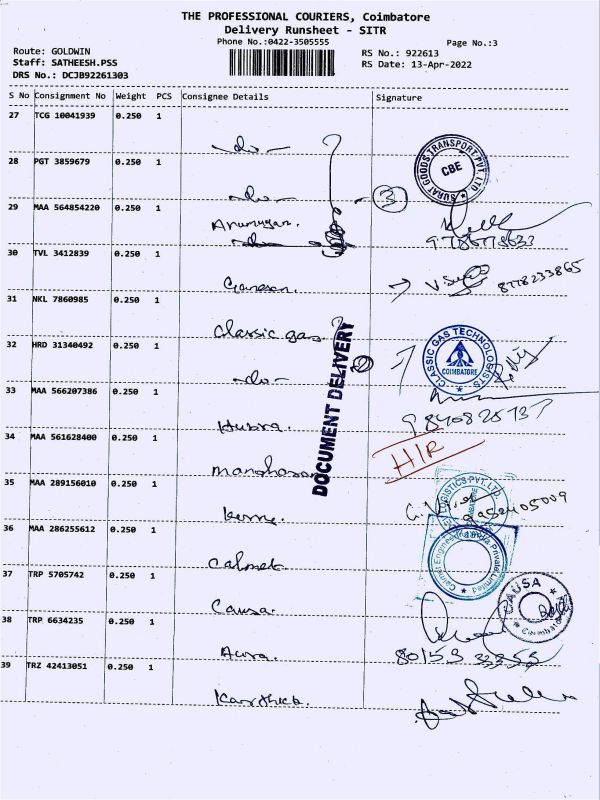 THE PROFESSIONAL COURIERS, Coimbatore
Delivery Runsheet - SITR
Phone No.:0422-3505555
Page No.:3
Route: GOLDWIN
Staff: SATHEESH.PSS
DRS No.: DCJB92261303
RS No.: 922613
RS Date: 13-Apr-2022
S No Consignment No Weight PCS Consignee Details Signature
27 TCG 10041939 0.250 1 -do-
SURAT GOODS TRANSPORT PVT. LTD CBE
28 PGT 3859679 0.250 1 -do- 3
29 MAA 564854220 0.250 1 Arumugam.
30 TVL 3412839 0.250 1 Ganesan. 8778233865
31 NKL 7860985 0.250 1 Classic gas
32 HRD 31340492 0.250 1 -do-
CLASSIC GAS TECHNOLOGISTS COIMBATORE
DOCUMENT DELIVERY
33 MAA 566207386 0.250 1
34 MAA 561628400 0.250 1 H/R
35 MAA 289156010 0.250 1
LOGISTICS PVT. LTD.
36 MAA 286255612 0.250 1 Calmet
Private Limited
37 TRP 5705742 0.250 1 Causa.
CAUSA
38 TRP 6634235 0.250 1 Aura.
39 TRZ 42413051 0.250 1 Karthick.